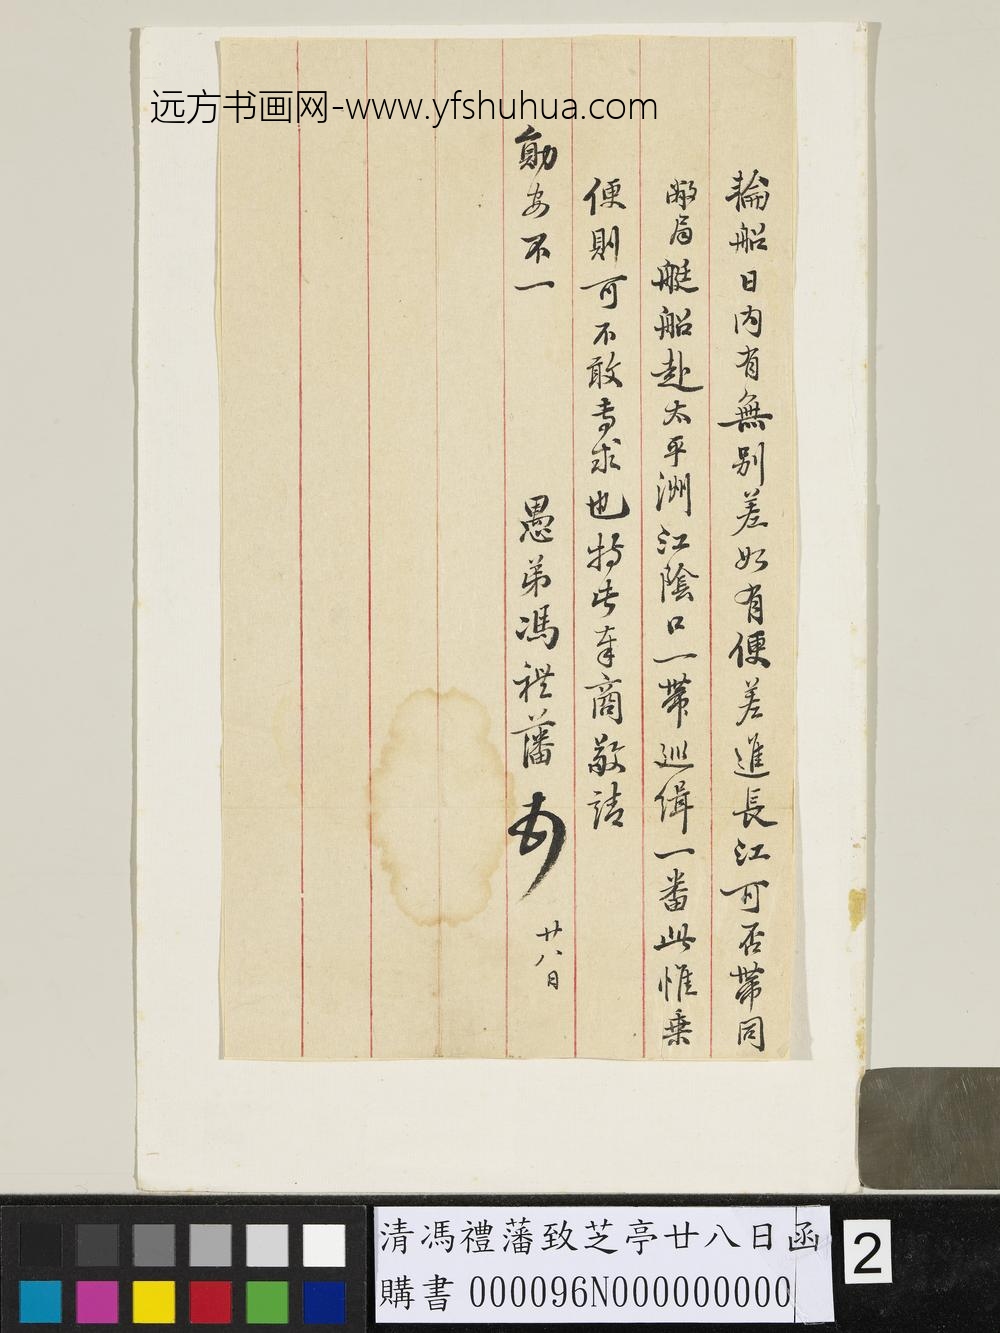 远方书画网-www.yfshuhua.com
輪船日内有無别差如有便差進長江可否帶同
敝局艇船赴太平洲江陰口一帶巡缉一番此惟乗
便則可不敢專求也特此奉商敬請
勛安不一
愚弟馮禮藩
廿八日
清馮禮藩致芝亭廿八日函
購書 000096N000000000
2